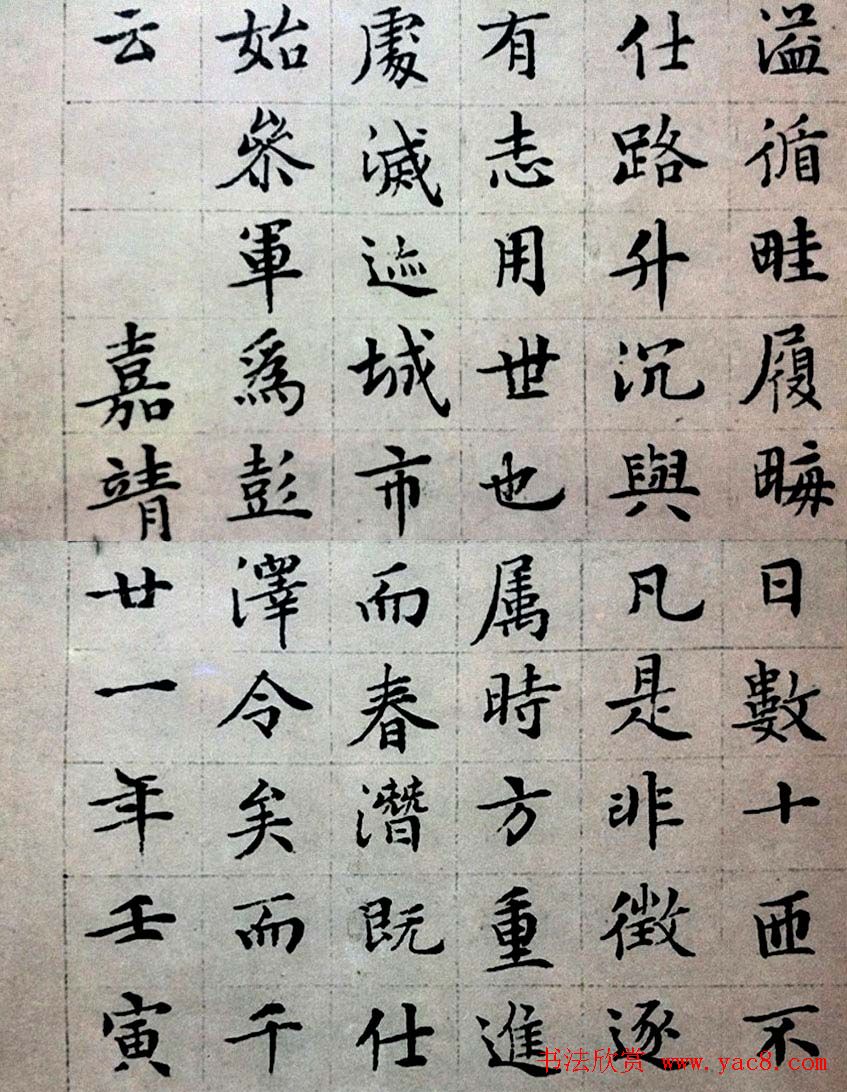 溢循畦履畮日數十匝不
仕路升沉與凡是非徵逐
有志用世也属時方重進
處滅迹城市而春潛既仕
始叅軍爲彭澤令矣而千
云嘉靖廿一年壬寅
书法欣赏 www.yac8.com